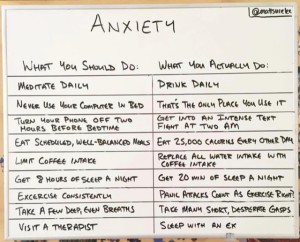 @mattsurelee
ANXIETY
WHAT YOU SHOULD DO:
WHAT YOU ACTUALLY DO:
MEDITATE DAILY
DRINK DAILY
NEVER USE YOUR COMPUTER IN BED
THAT'S THE ONLY PLACE YOU USE IT
TURN YOUR PHONE OFF TWO
HOURS BEFORE BEDTIME
GET INTO AN INTENSE TEXT
FIGHT AT TWO AM
EAT SCHEDULED, WELL-BALANCED MEALS
EAT 25,000 CALORIES EVERY OTHER DAY
LIMIT COFFEE INTAKE
REPLACE ALL WATER INTAKE WITH
COFFEE INTAKE
GET 8 HOURS OF SLEEP A NIGHT
GET 20 MIN OF SLEEP A NIGHT
EXCERCISE CONSISTENTLY
PANIC ATTACKS COUNT AS EXERCISE RIGHT?
TAKE A FEW DEEP, EVEN BREATHS
TAKE MANY SHORT, DESPERATE GASPS
VISIT A THERAPIST
SLEEP WITH AN EX